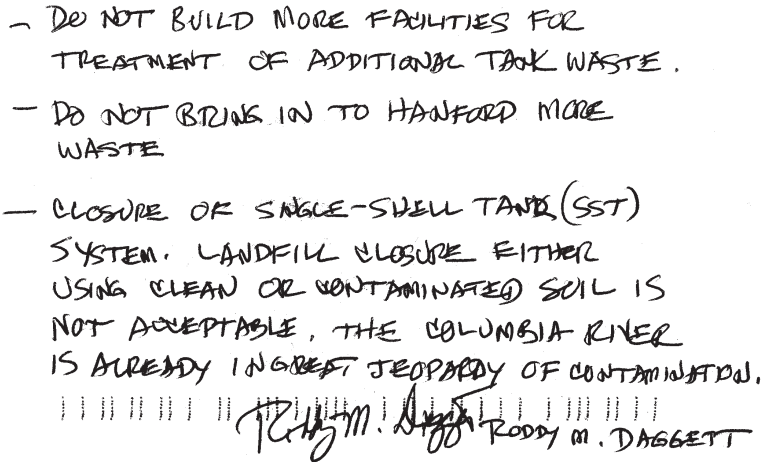 - DO NOT BUILD MORE FACILITIES FOR
TREATMENT OF ADDITIONAL TANK WASTE.
- DO NOT BRING IN TO HANFORD MORE
WASTE
- CLOSURE OF SINGLE-SHELL TANK (SST)
SYSTEM. LANDFILL CLOSURE EITHER
USING CLEAN OR CONTAMINATED SOIL IS
NOT ACCEPTABLE. THE COLUMBIA RIVER
IS ALREADY IN GREAT JEOPARDY OF CONTAMINATION.
Roddy M. Daggett RODDY M. DAGGETT